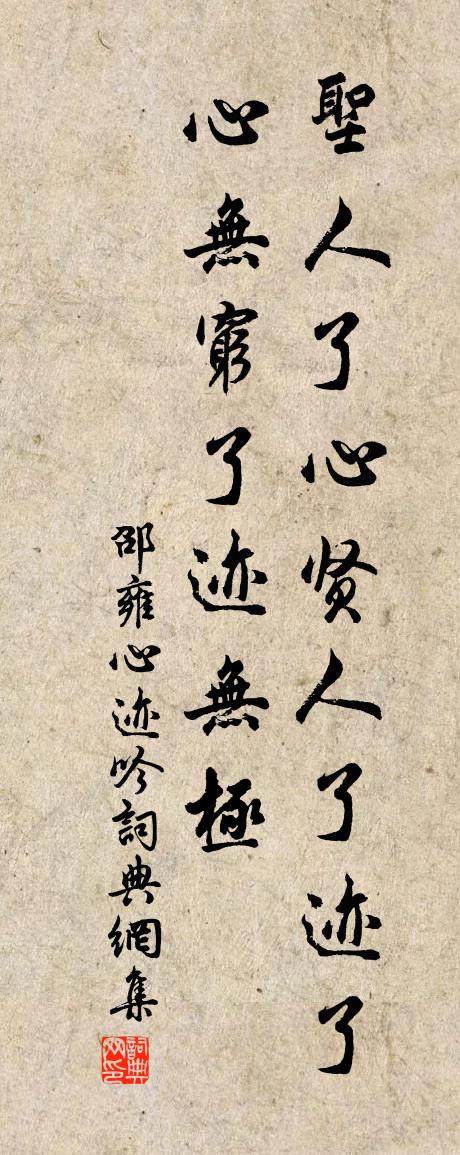 聖人了心贤人了迹了
心無窮了迹無極
邵雍心迹吟詞典網集
詞典网印